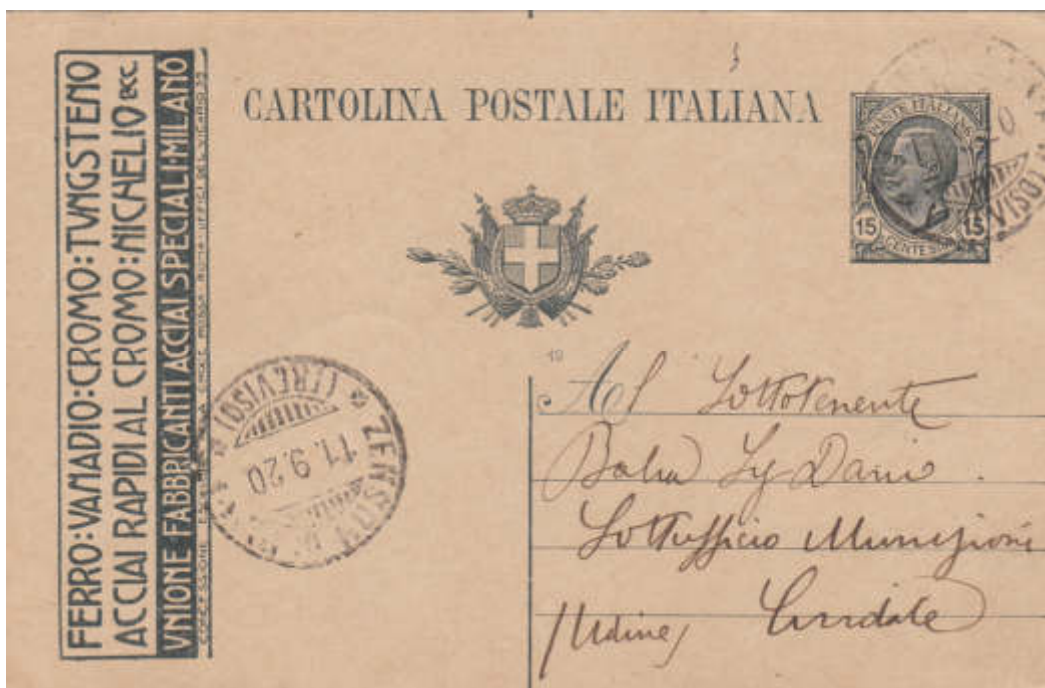 FERRO:VANADIO:CROMO:TUNGSTENO
ACCIAI RAPIDI AL CROMO:NICHELIO ECC.
VNIONE FABBRICANTI ACCIAI SPECIALI·MILANO
CARTOLINA POSTALE ITALIANA
POSTE ITALIANE
15 15
CENTESIMI
19
ZENSON DI
(TREVISO)
11.9.20
Al Sottotenente
Dario
Sottufficio Munizioni
Cividale
(Udine)